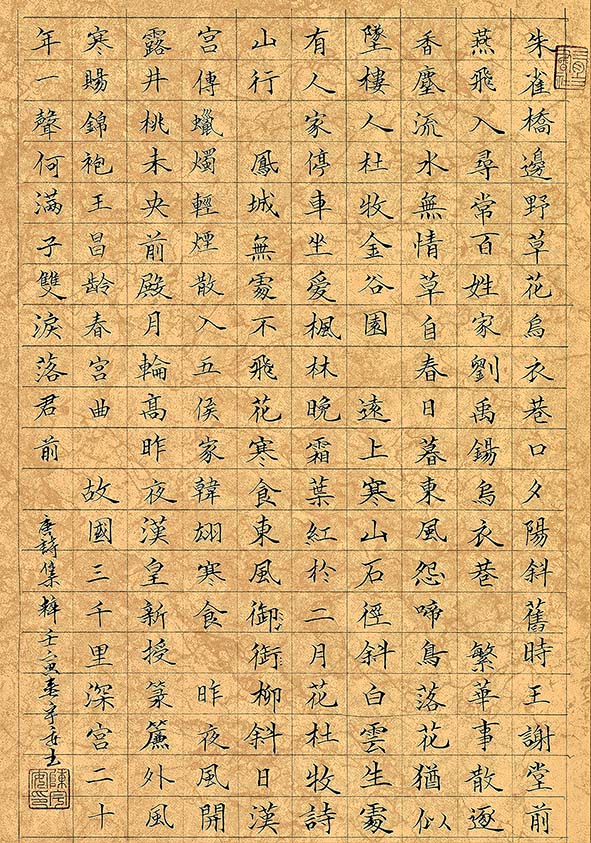 朱雀橋邊野草花烏衣巷口夕陽斜舊時王謝堂前
燕飛入尋常百姓家劉禹錫烏衣巷 繁華事散逐
香塵流水無情草自春日暮東風怨啼鳥落花猶似
墜樓人杜牧金谷園 遠上寒山石徑斜白雲生處
有人家停車坐愛楓林晚霜葉紅於二月花杜牧詩
山行 鳳城無處不飛花寒食東風御街柳斜日漢
宮傳蠟燭輕煙散入五侯家韓翃寒食 昨夜風開
露井桃未央前殿月輪高昨夜漢皇新授篆簾外風
寒賜錦袍王昌齡春宮曲 故國三千里深宮二十
年一聲何滿子雙淚落君前
唐詩集粹壬寅春